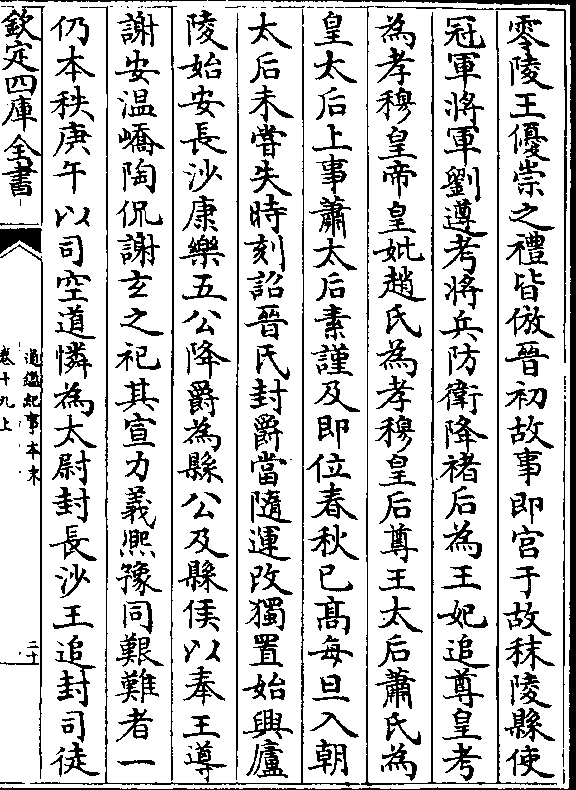 零陵王優崇之禮皆倣晉初故事即宫于故秣陵縣使
冠軍將軍劉遵考將兵防衛降褚后為王妃追尊皇考
為孝穆皇帝皇妣趙氏為孝穆皇后尊王太后蕭氏為
皇太后上事蕭太后素謹及即位春秋已髙每旦入朝
太后未嘗失時刻詔晉氏封爵當隨運改獨置始興廬
陵始安長沙康樂五公降爵為縣公及縣侯以奉王導
謝安温嶠陶侃謝玄之祀其宣力義熙豫同艱難者一
仍本秩庚午以司空道憐為太尉封長沙王追封司徒
欽定四庫全書
通鑑紀事本末
卷十九上
二十